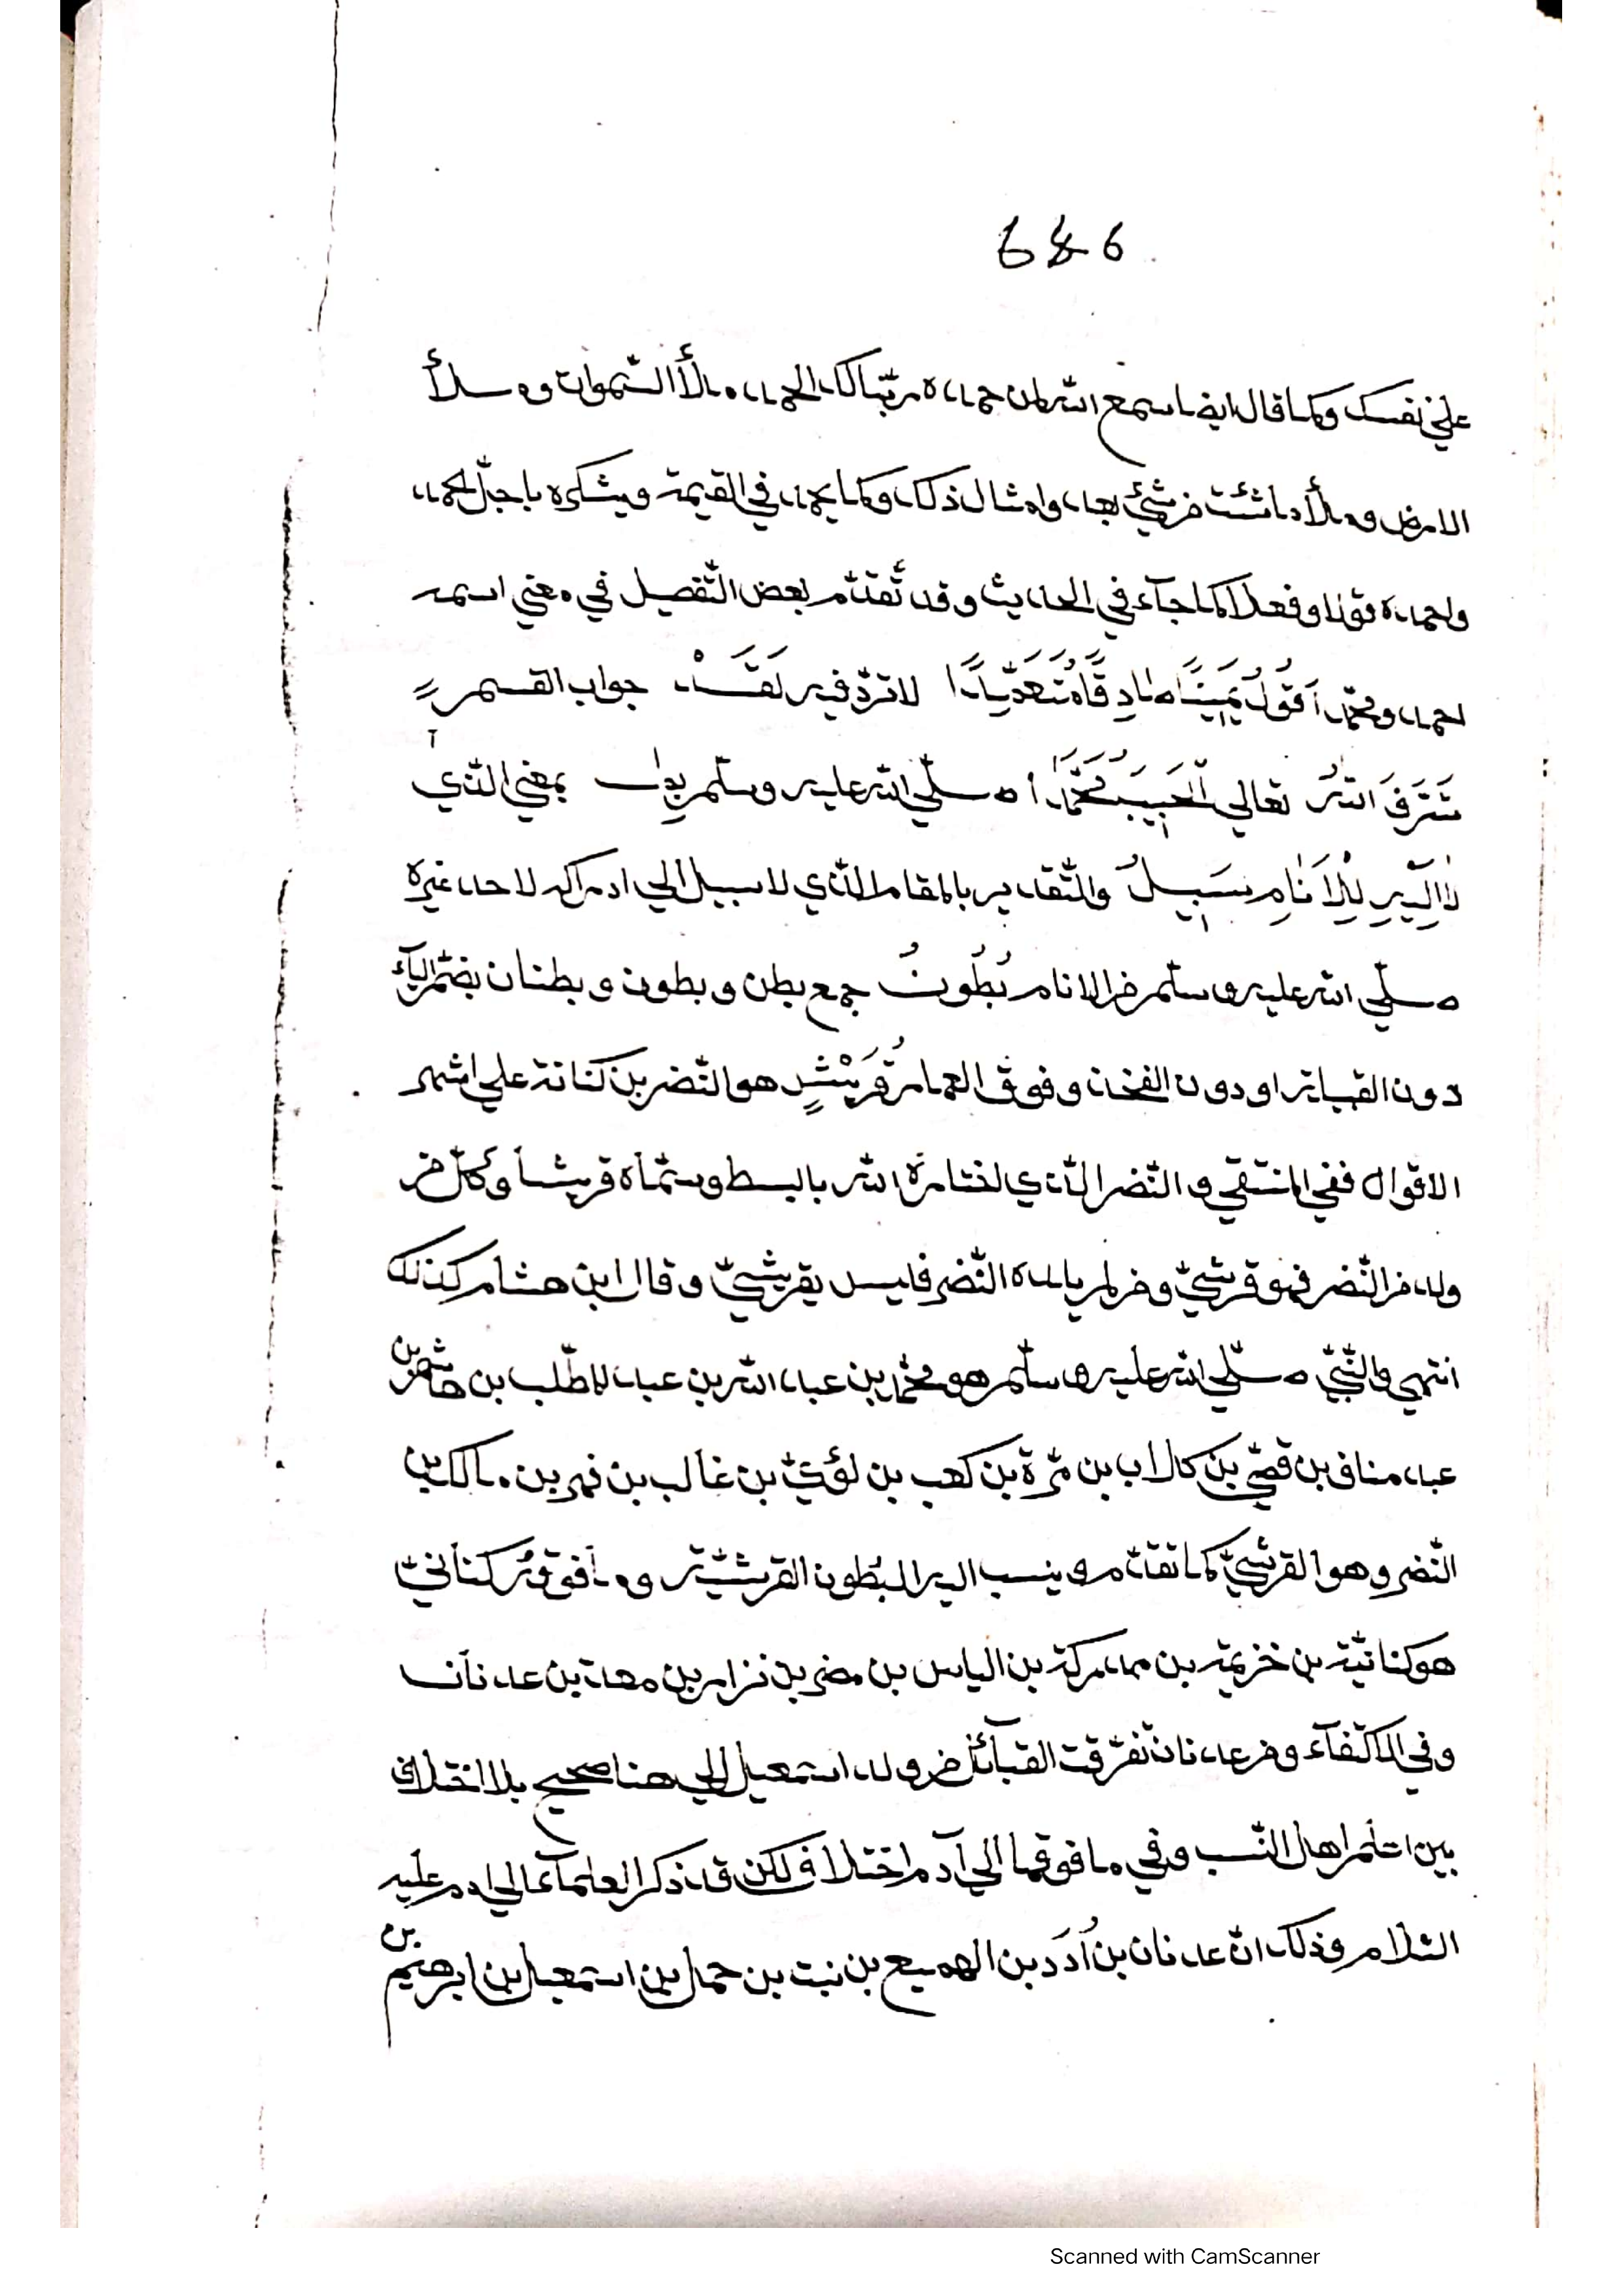 6 & 6
علي نفسك وكما قال ايضا سمع الله لمن حمده ربنا لك الحمد ملأ السموات وملأ
الارض وملأ ما شئت من شيئ بعد وامثال ذلك وكما يحمد في القيمة ويشكره باجل الحمد
واحمده قولا وفعلا كما جآء في الحديث وقد تقدم بعض التفصيل في معني اسمه
احمد ومحمد اَقُولُ يَمِينًا صَادِقًا مُتَعَدِّيًا لا ترد فيه لَقَدْ جواب القسم
شَرَّفَ اللهُ تعالي الحَبِيبَ مُحَمَّدًا صلي الله عليه وسلم بِمَا بمعني الذي
لاَ اِلَيْهِ لِلْاَنَامِ سَبِيلُ والتقدير بالمقام الذي لا سبيل الي ادراكه لاحد غيره
صلي الله عليه وسلم من الانام بُطُونُ جمع بطن وبطون وبطنان بضم البآء
دون القبيلة او دون الفخذ وفوق العمارة قُرَيْشٍ هو النضر بن كنانة علي اشهر
الاقوال ففي المنتقي و النضر الذي اختاره الله بالبسط وسماه قريشا وكل من
ولد من النضر فهو قرشي ومن لم يلده النضر فليس بقرشي وقال ابن هشام كذلك
انتهي والنبي صلي الله عليه وسلم هو محمد بن عبد الله بن عبد المطلب بن هاشم بن
عبد مناف بن قصي بن كلاب بن مرة بن كعب بن لؤي بن غالب بن فهر بن مالك بن
النضر وهو القرشي كما تقدم وينسب اليه البُطون القرشية وما فوقه كناني
هو كنانة بن خزيمة بن مدركة بن الياس بن مضر بن نزار بن معد بن عدنان
وفي الاكتفآء ومن عدنان تفرقت القبآئل من ولد اسمعيل الي هنا صحيح بلا اختلاف
بين اهل النسب وفي ما فوقها الي آدم اختلاف لكن قد ذكر العلمآء الي ادم عليه
السلام وذلك ان عدنان بن اُدَد بن الهميع بن نبت بن حمل بن اسمعيل بن ابرهيم بن
Scanned with CamScanner